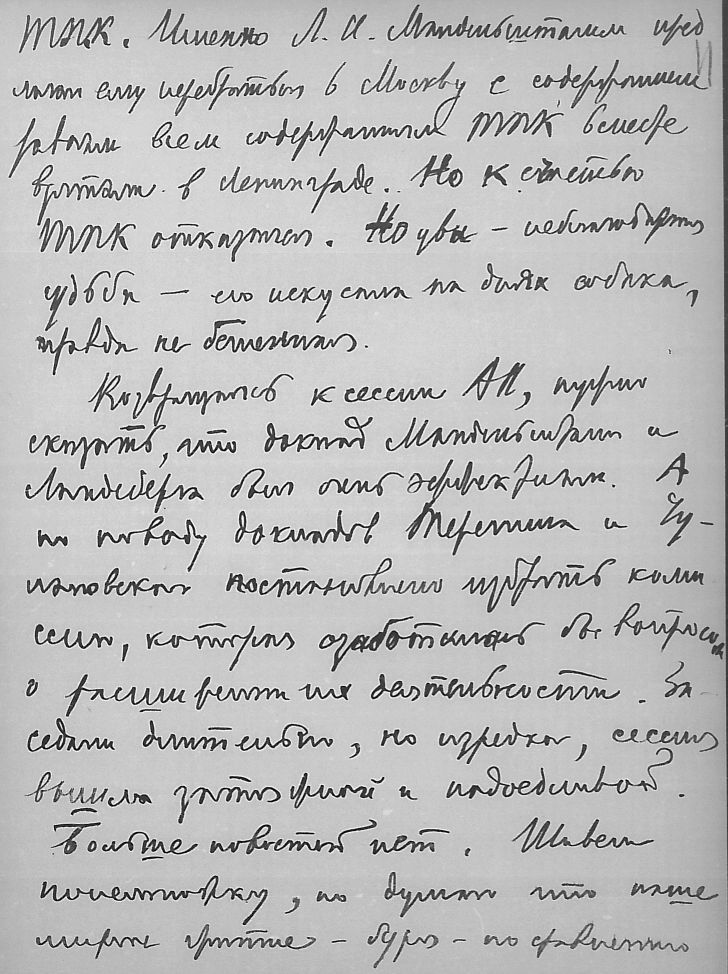 ТПК. Именно Л. И. Мандельштам пред
лагал ему перебраться в Москву с содержанием
всем содержанием ТПК вместе
в Ленинграде. Но к счастью
ТПК отказался. Но увы – неблагодарная
судьба – его искусала на днях собака,
правда не бешеная.
Возвращаясь к сессии АН, нужно
сказать, что доклад Мандельштама и
Ландсберга был очень эффектным. А
по поводу докладов Теренина и Чу-
лановского постановлено избрать коми
ссию, которая озаботилась бы вопросом
о расширении их деятельности. За-
седали длительно, но изредка, сессия
вышла затяжной и надоедливой.
Больше новостей нет. Живем
понемножку, но думаю что наше
житье – буря – по сравнению